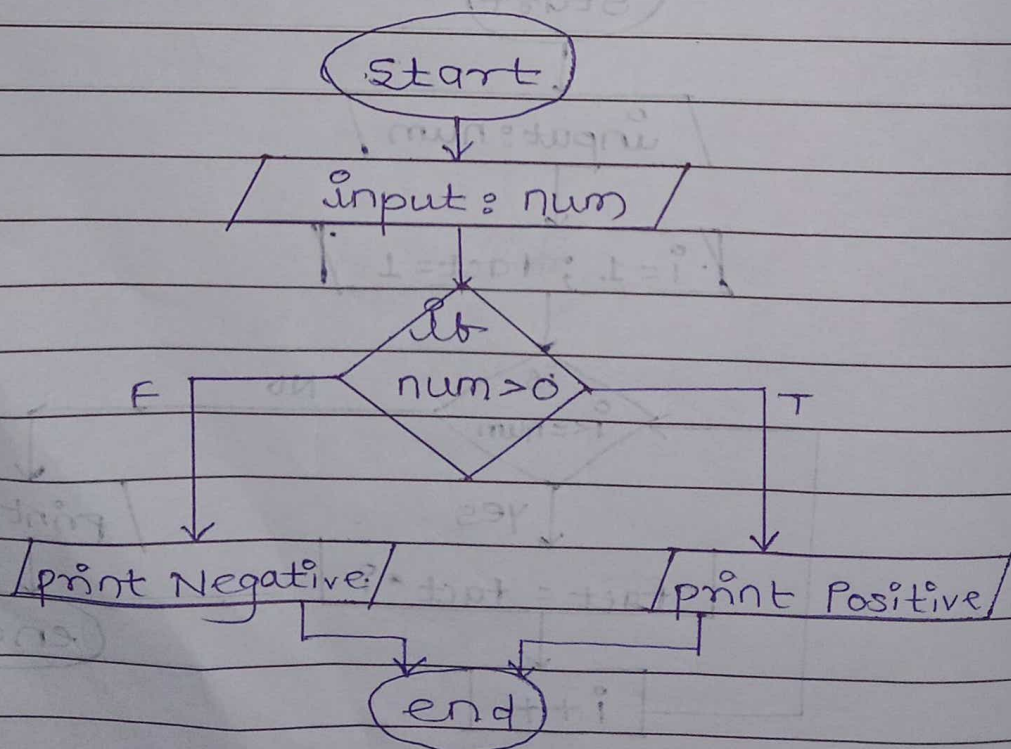 Start
input: num
if
num>0
F
T
print Negative
print Positive
end